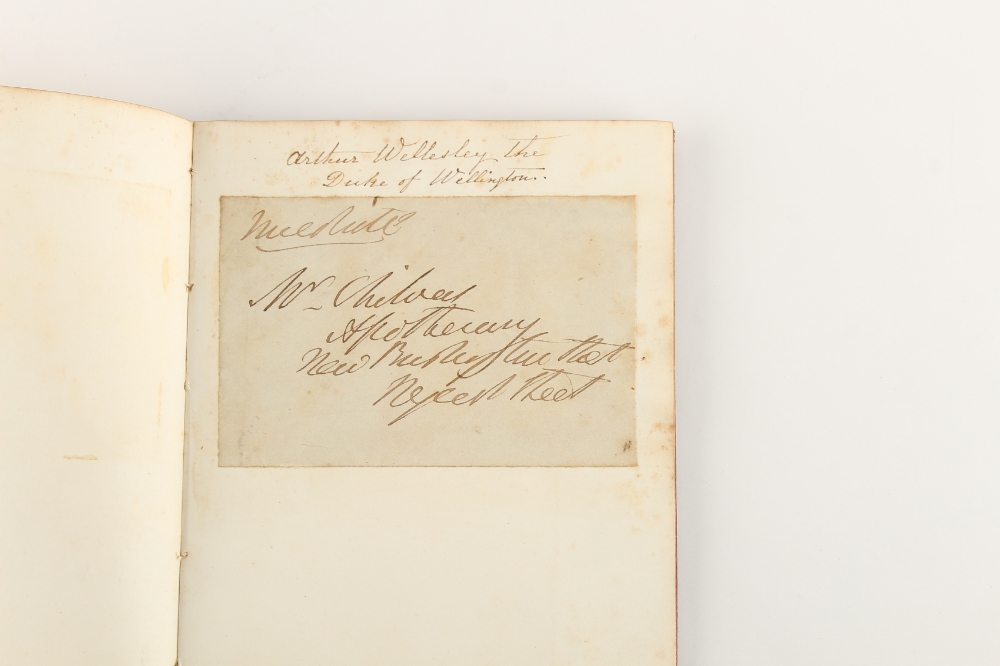 Arthur Wellesley the
Duke of Wellington.
Immediate
Mr. Chilver
Apothecary
New Burlington Street
Regent Street